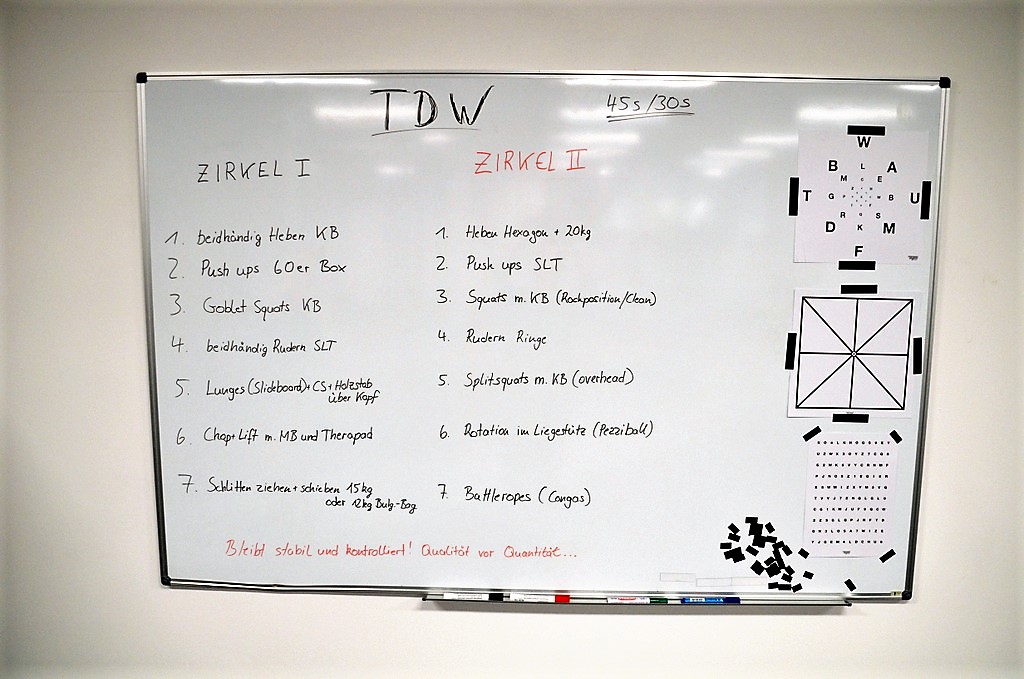 TDW
45s/30s
ZIRKEL I
1. beidhändig Heben KB
2. Push ups 60er Box
3. Goblet Squats KB
4. beidhändig Rudern SLT
5. Lunges (Slideboard)+CS+Holzstab
über Kopf
6. Chop+Lift m. MB und Therapad
7. Schlitten ziehen + schieben 15kg
oder 12kg Bulg.-Bag
ZIRKEL II
1. Heben Hexagon + 20kg
2. Push ups SLT
3. Squats m. KB (Rackposition/Clean)
4. Rudern Ringe
5. Splitsquats m. KB (overhead)
6. Rotation im Liegestütz (Pezziball)
7. Battleropes (Congas)
Bleibt stabil und kontrolliert! Qualität vor Quantität...
W
B L A
M E
T G B U
R S
D K M
F